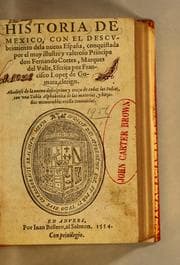 HISTORIA DE
MEXICO, CON EL DESCV-
brimiento dela nueva España, conquistada
por el muy illustre y valeroso Principe
don Fernando Cortes, Marques
del Valle, Escrita por Fran-
cisco Lopez de Go-
mara, clerigo.
Añadiose de nuevo la descripcion y traça de todas las Indias,
con una Tabla Alphabetica de las materias, y haza-
ñas memorables enella contenidas.
JOHN CARTER BROWN
EN ANVERS,
Por Iuan Bellero, al Salmon. 1554.
Con privilegio.